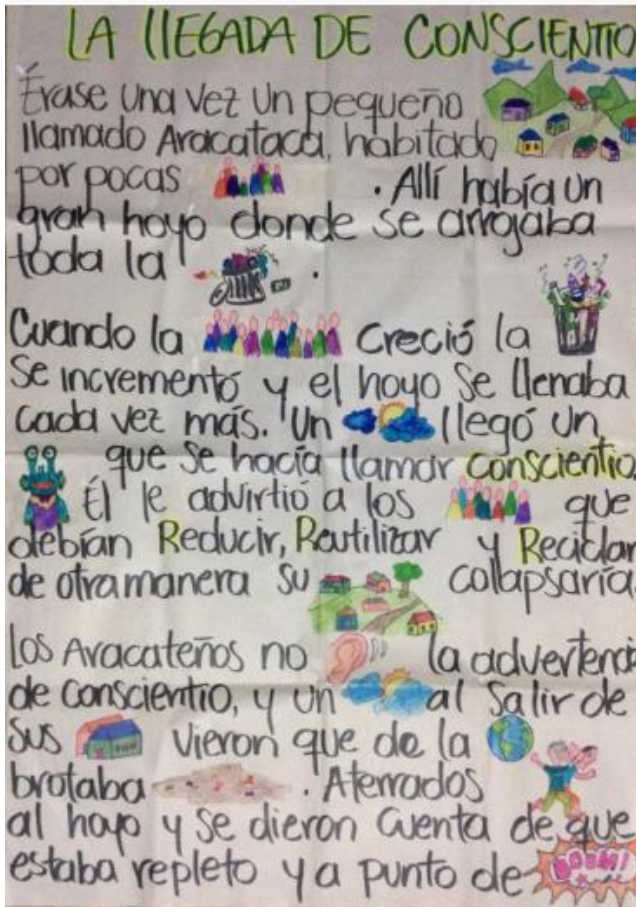 LA LLEGADA DE CONSCIENTIO
Érase una vez un pequeño
llamado Aracataca, habitado
por pocas . Allí había un
gran hoyo donde se arrojaba
toda la .
Cuando la creció la
se incrementó y el hoyo se llenaba
cada vez más. Un llegó un
que se hacía llamar conscientio.
Él le advirtió a los que
debían Reducir, Reutilizar y Reciclar
de otra manera su colapsaría.
Los Aracateños no la advertenci
de conscientio, y un al salir de
sus vieron que de la
brotaba . Aterrados
al hoyo y se dieron cuenta de que
estaba repleto y a punto de BOOM!